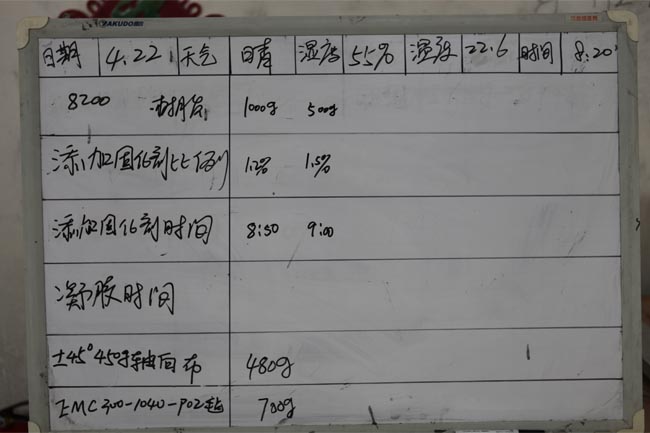 日期 4.22 天气 日青 湿度 55% 温度 22.6 时间 8:20
8200 树脂 1000g 500g
添加固化剂比例 1.2% 1.5%
添加固化剂时间 8:50 9:00
凝胶时间
±45° 450g 轴向布 480g
EMC300-1040-P02毡 700g